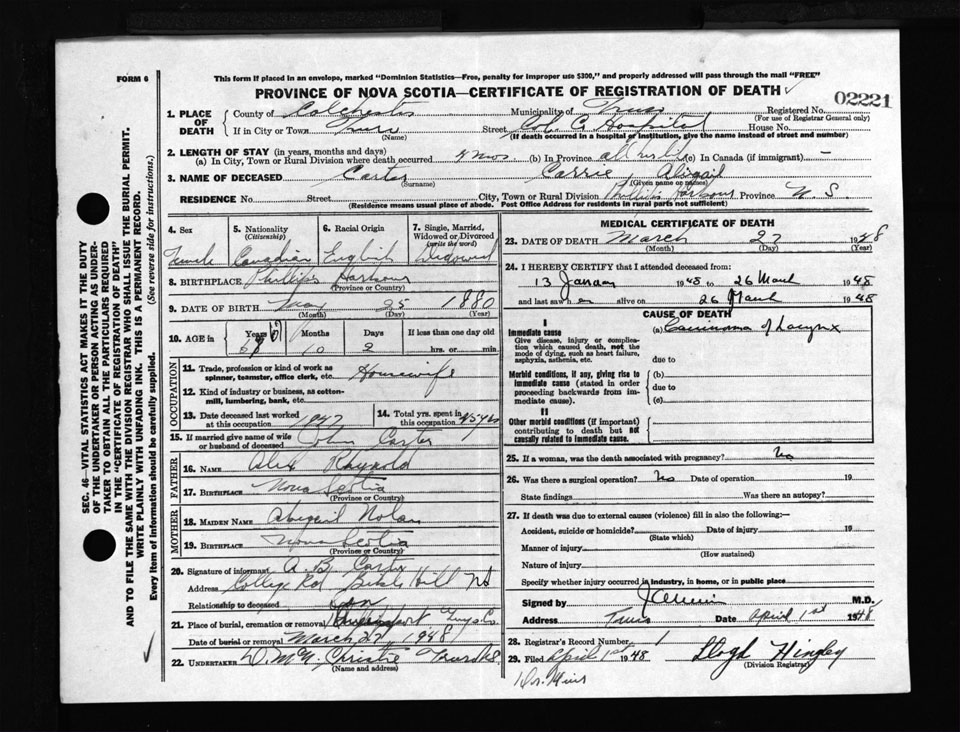 FORM 6
This form if placed in an envelope, marked "Dominion Statistics—Free, penalty for improper use $300," and properly addressed will pass through the mail "FREE"
PROVINCE OF NOVA SCOTIA—CERTIFICATE OF REGISTRATION OF DEATH
02221
1. PLACE OF DEATH
County of Colchester Municipality of Truro Registered No.
(For use of Registrar General only)
If in City or Town Truro Street Hospital House No.
(Name) (If death occurred in a hospital or institution, give the name instead of street and number)
2. LENGTH OF STAY (in years, months and days)
(a) In City, Town or Rural Division where death occurred 4 mos. (b) In Province all her life (c) In Canada (if immigrant) —
3. NAME OF DECEASED Carter Carrie Abigail
(Surname) (Given name or names)
RESIDENCE No. Street City, Town or Rural Division Phillips Harbour Province N. S.
(Residence means usual place of abode. Post Office Address for residents in rural parts not sufficient)
4. Sex 5. Nationality (Citizenship) 6. Racial Origin 7. Single, Married, Widowed or Divorced (write the word)
Female Canadian English Widowed
8. BIRTHPLACE Phillips Harbour
(Province or Country)
9. DATE OF BIRTH May 25 1880
(Month) (Day) (Year)
10. AGE in Years Months Days If less than one day old
67 10 2 hrs. or min.
OCCUPATION
11. Trade, profession or kind of work as spinner, teamster, office clerk, etc. Housewife
12. Kind of industry or business, as cotton-mill, lumbering, bank, etc.
13. Date deceased last worked at this occupation 1947 14. Total yrs. spent in this occupation 45 yrs
15. If married give name of wife or husband of deceased John Carter
FATHER
16. NAME Alex Rhynold
17. BIRTHPLACE Nova Scotia
(Province or Country)
MOTHER
18. MAIDEN NAME Abigail Nolan
19. BIRTHPLACE Nova Scotia
(Province or Country)
20. Signature of informant A. B. Carter
Address College Rd Bible Hill NS
Relationship to deceased Son
21. Place of burial, cremation or removal Queensport Guys Co.
Date of burial or removal March 27, 1948
22. UNDERTAKER Christie Truro N.S.
(Name and address)
MEDICAL CERTIFICATE OF DEATH
23. DATE OF DEATH March 27 1948
(Month) (Day) (Year)
24. I HEREBY CERTIFY that I attended deceased from:
13 January 1948 to 26 March 1948
and last saw her alive on 26 March 1948
CAUSE OF DEATH
I
Immediate cause (a) Carcinoma of Larynx
Give disease, injury or complication which caused death, not the mode of dying, such as heart failure, asphyxia, asthenia, etc. due to
Morbid conditions, if any, giving rise to immediate cause (stated in order proceeding backwards from immediate cause). (b)
due to
(c)
II
Other morbid conditions (if important) contributing to death but not causally related to immediate cause.
25. If a woman, was the death associated with pregnancy? No
26. Was there a surgical operation? No Date of operation 19
State findings Was there an autopsy?
27. If death was due to external causes (violence) fill in also the following:—
Accident, suicide or homicide? Date of injury 19
(State which)
Manner of injury
(How sustained)
Nature of injury
Specify whether injury occurred in industry, in home, or in public place
Signed by M.D.
Address Truro Date April 1st 1948
28. Registrar's Record Number 1
29. Filed April 1st 1948 Lloyd Hingley
(Division Registrar)
Dr. Muir
SEC. 46—VITAL STATISTICS ACT MAKES IT THE DUTY
OF THE UNDERTAKER OR PERSON ACTING AS UNDER-
TAKER TO OBTAIN ALL THE PARTICULARS REQUIRED
IN THE "CERTIFICATE OF REGISTRATION OF DEATH"
AND TO FILE THE SAME WITH THE DIVISION REGISTRAR WHO SHALL ISSUE THE BURIAL PERMIT.
WRITE PLAINLY WITH UNFADING INK. THIS IS A PERMANENT RECORD.
Every item of information should be carefully supplied. (See reverse side for instructions.)